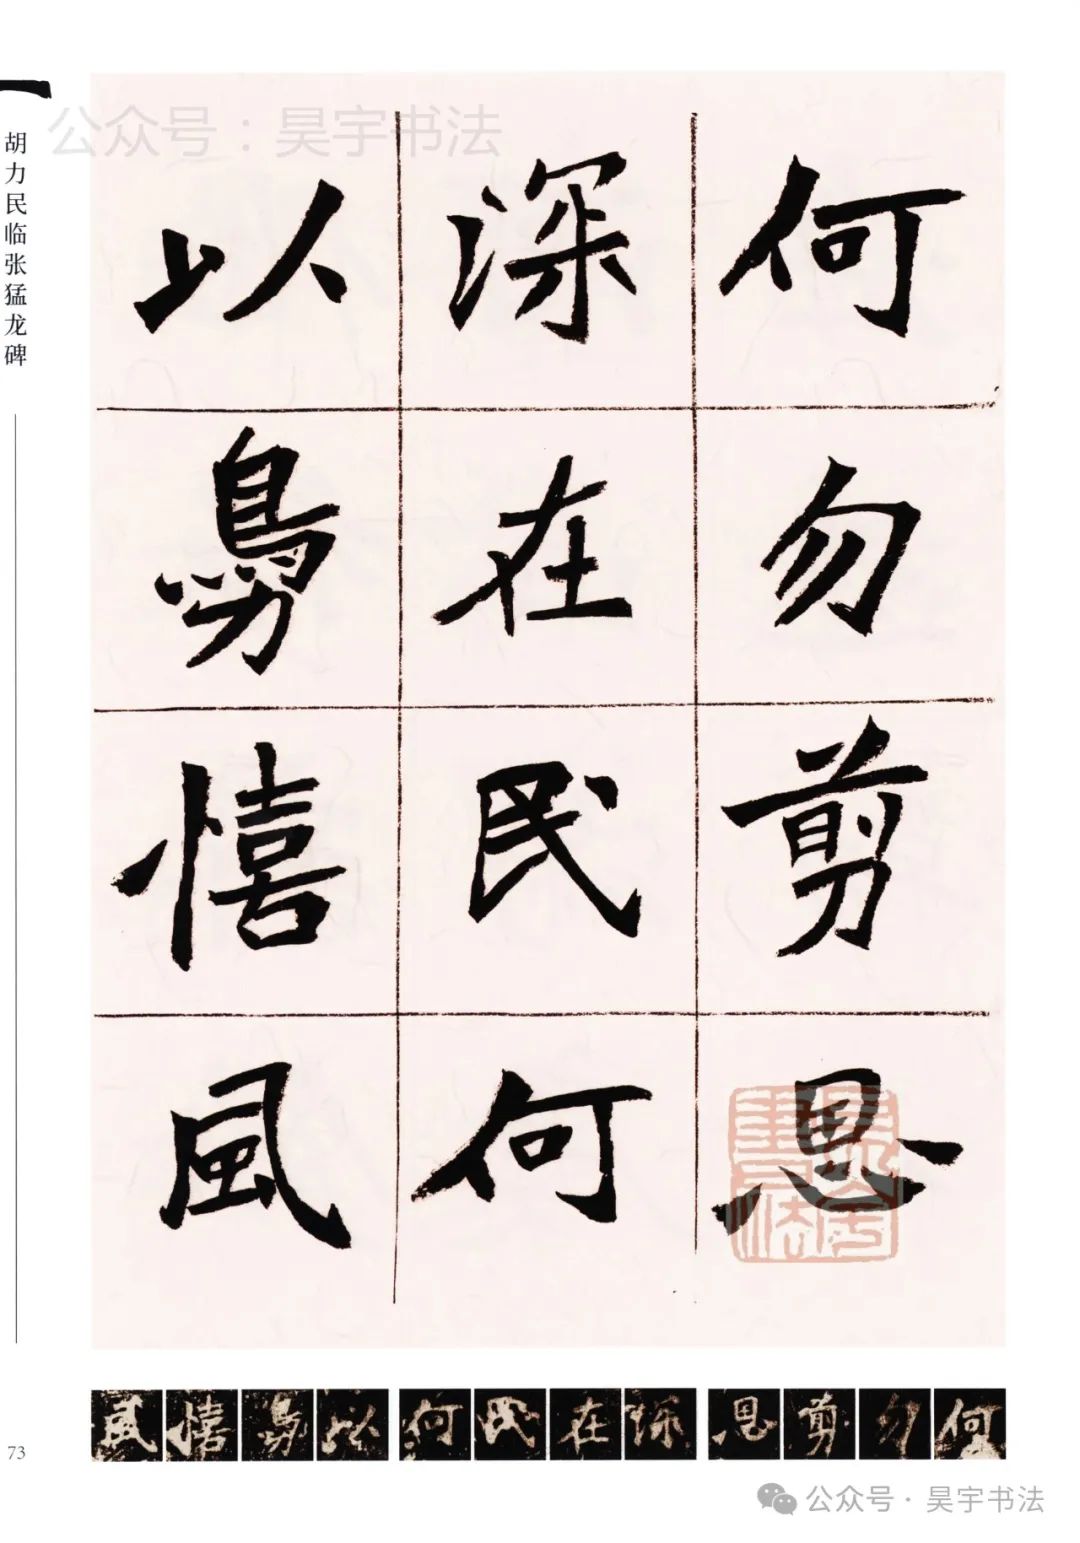 公众号：昊宇书法
胡力民临张猛龙碑
何勿剪恩
深在民何
以憘風
何勿剪恩深在民何以憘風
73
公众号·昊宇书法